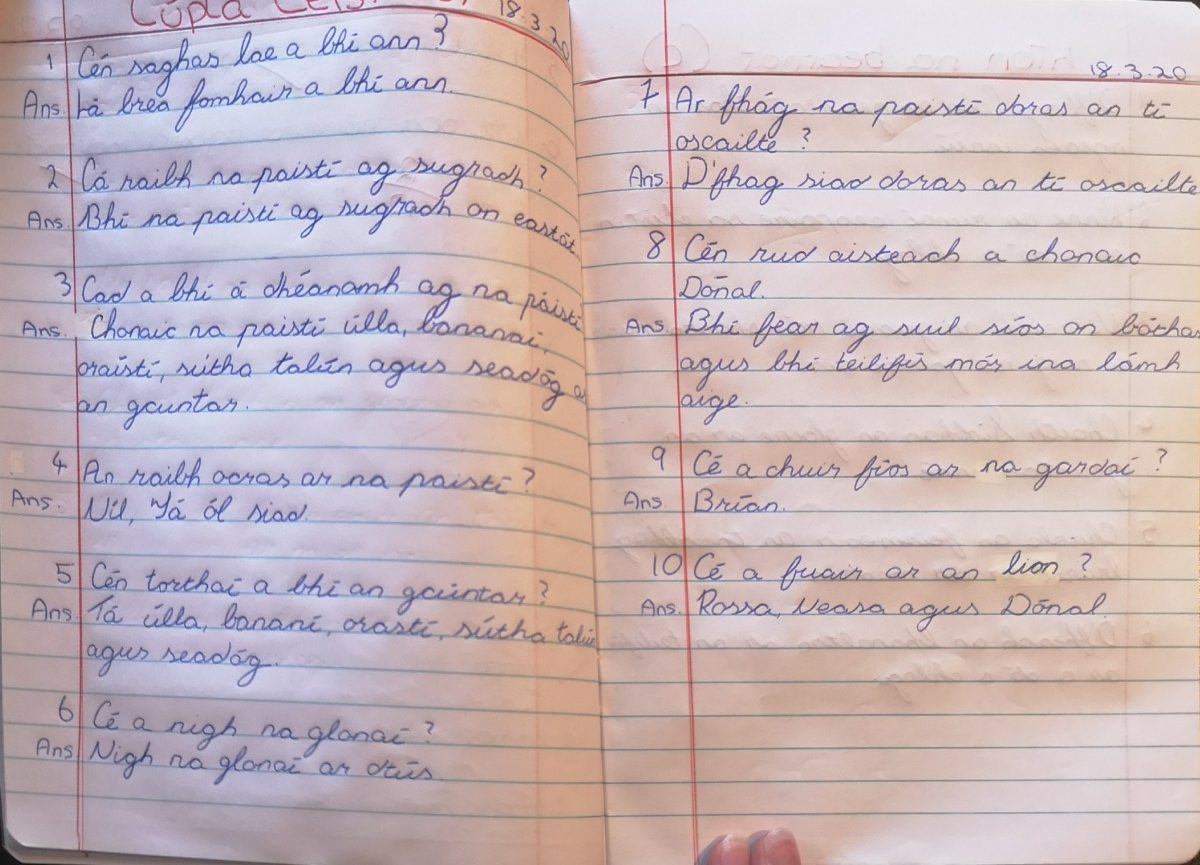 Cúpla
18.3.20
1 Cén saghas lae a bhí ann?
Ans. Lá breá fomhair a bhí ann.
2 Cá raibh na paistí ag sugradh?
Ans. Bhí na paistí ag sugradh on eastát.
3 Cad a bhí á dhéanamh ag na páistí
Ans. Chonaic na paistí úlla, bananaí,
oráistí, sútha talún agus seadóg ar
an gcuntar.
4 An raibh ocras ar na paistí?
Ans. Níl, Tá ól siad.
5 Cén torthaí a bhí an gcúntar?
Ans Tá úlla, bananí, orastí, sútha talún
agus seadóg.
6 Cé a nigh na glonaí?
Ans Nigh na glonaí ar dtús.
18.3.20
7 Ar fhág na paistí doras an tí
oscailte?
Ans. D'fhag siad doras an tí oscailte
8 Cén rud aisteach a chonaic
Dónal.
Ans. Bhí féar ag suil síos on bóthar
agus bhí teilifís mór ina lámh
aige.
9 Cé a chuir fíos ar na gardaí?
Ans. Brían.
10 Cé a fuair ar an lion?
Ans. Rossa, Neasa agus Dónal.